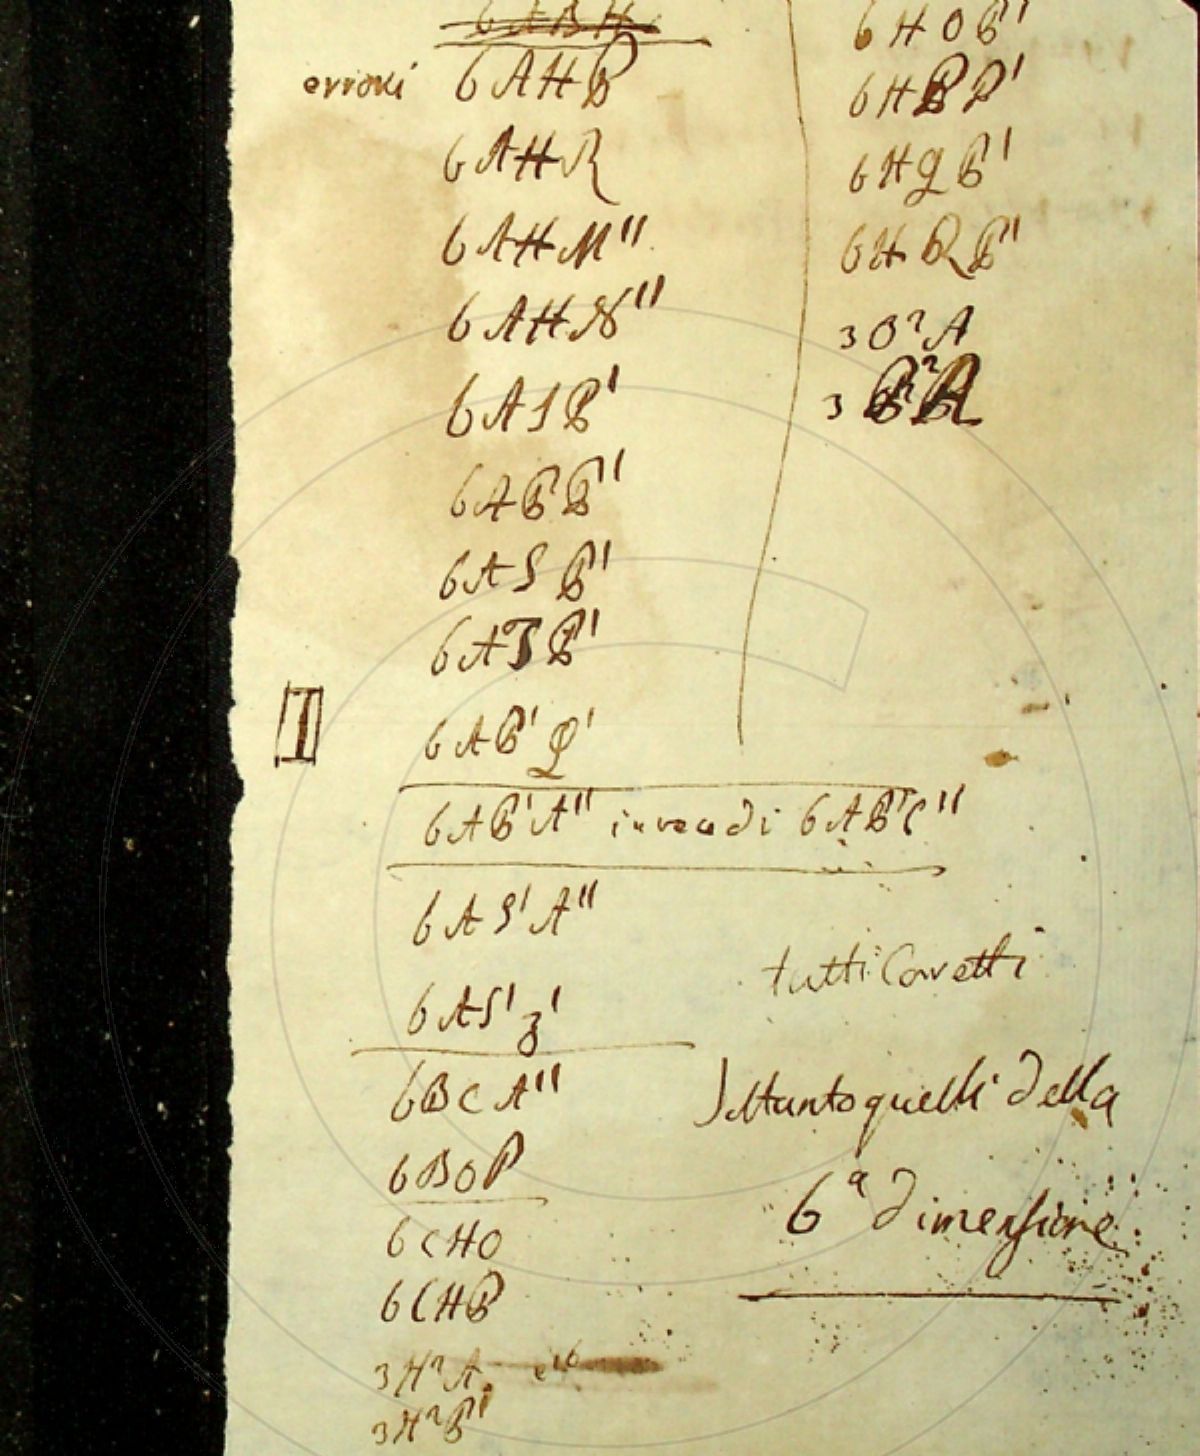 errori 6 A H B
6 A H R
6 A H M"
6 A H N"
6 A S B'
6 A B B'
6 A S B'
6 A T B'
I
6 A B' Q'
6 A B' A" invece di 6 A B' C"
6 A S' A"
6 A S' z'
6 B C A"
6 B O P
6 C H O
6 C H B
3 H² A
3 H² B'
6 H O B'
6 H B B'
6 H Q B'
6 H R B'
3 O² A
tutti Corretti
soltanto quelli della
6ª dimensione